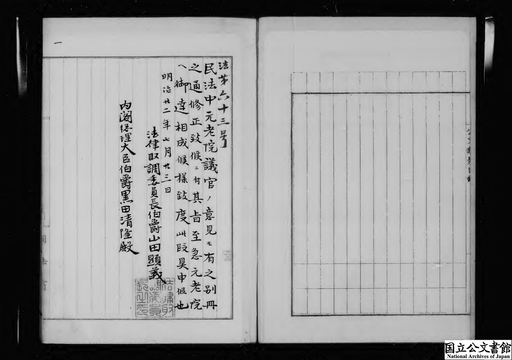 法第六十三号
民法中元老院議官ノ意見ニ有之別冊
之通修正致候ニ付其旨至急元老院
ヘ御達相成候様致度此段具申候也
明治廿二年七月廿三日
法律取調委員長伯爵山田顕義
内閣総理大臣伯爵黒田清隆殿
一
国立公文書館
National Archives of Japan